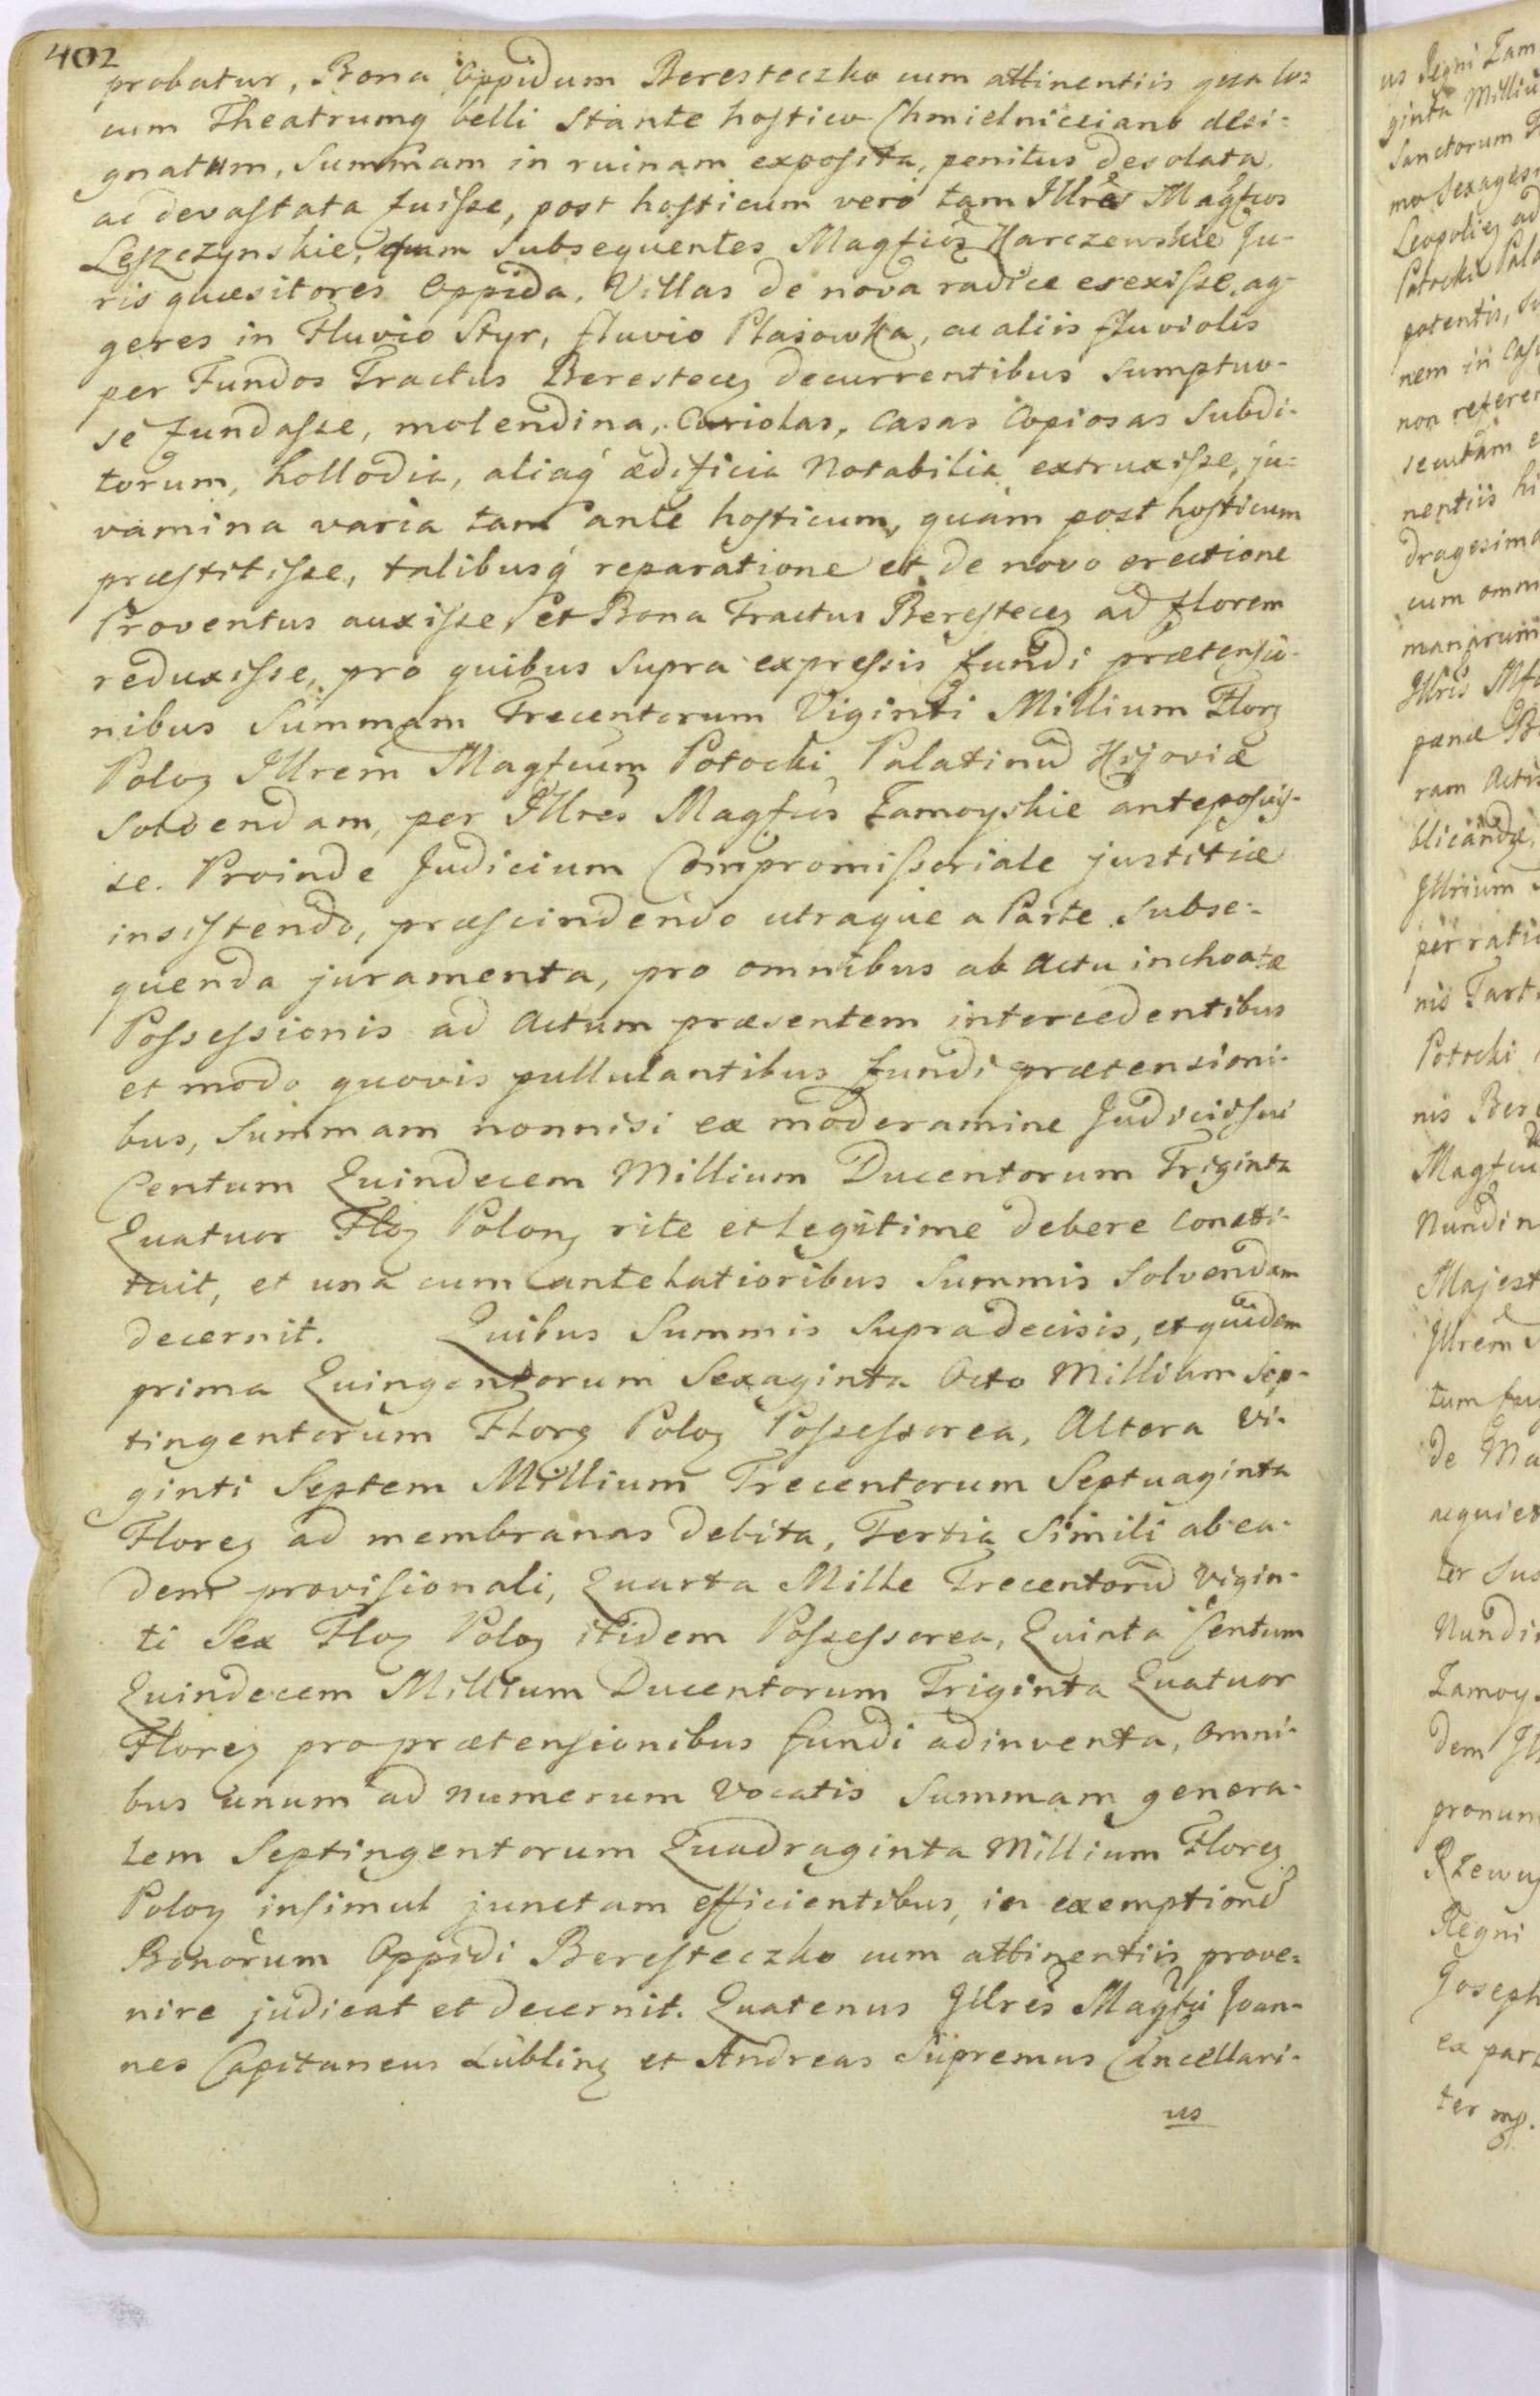 402
probatur, Bona Oppidum Beresteczko cum attinentiis qua lo-
cum Theatrumq belli stante hostico Chmielniciano desi-
gnatum, Summam in ruinam exposita, penitus desolata
ac devastata fuisse, post hosticum vero tam Illres Magfcos
Leszczynskie, quam Subsequentes Magfcos Karczewskie Ju-
ris quæsitores Oppida, Villas de nova radice erexisse, ag-
geres in Fluvio Styr, fluvio Plasowka, ac aliis fluviolis
per Fundos Tractus Berestecz decurrentibus Sumptuo-
se fundasse, molendina, Curiolas, Casas Copiosas Subdi-
torum, hollodia, aliaq ædificia Notabilia extruxisse, ju-
vamina varia tam ante hosticum, quam post hosticum
præstitisse, talibusq reparatione et de novo erectione
Proventus auxisse, et Bona Tractus Berestecz ad florem
reduxisse, pro quibus supra expressis fundi prætensio-
nibus Summam Trecentorum Viginti Millium Florz
Poloz Illrem Magfcum Potocki Palatinu Kijoviæ
Solvendam, per Illres Magfcos Zamoyskie anteposuis-
se. Proinde Judicium Compromissoriale justitiæ
insistendo, præscindendo utraque a Parte Subse-
quenda juramenta, pro omnibus ab Actu inchoatæ
Possessionis ad Actum præsentem intercedentibus
et modo quovis pullulantibus fundi prætensioni-
bus, Summam nonnisi ex moderamine Judicii sui
Centum Quindecem Millium Ducentorum Triginta
Quatuor Floz Polonz rite et legitime debere consti-
tuit, et una cum antelatioribus Summis Solvendam
decernit. Quibus Summis Supradecisis, et quidem
prima Quingentorum Sexaginta Octo Millium Sep-
tingentorum Florz Poloz Possessorea, Altera Vi-
ginti Septem Millium Trecentorum Septuaginta
Florez ad membranas debita, Tertia Simili ab ea-
dem provisionali, Quarta Mille Trecentoru Vigin-
ti Sex Floz Poloz itidem Possessorea, Quinta Centum
Quindecem Millium Ducentorum Triginta Quatuor
Florez pro prætensionibus fundi adinventa, omni-
bus unum ad numerum Vocatis Summam genera-
lem Septingentorum Quadraginta Millium Florez
Poloz insimul junctam efficientibus, in exemptione
Bonorum Oppidi Beresteczko cum attinentiis prove-
nire judicat et decernit. Quatenus Illres Magfci Joan-
nes Capitaneus Lublinz et Andreas Supremus Cancellari-
us
us Regni Zam
ginta Milliu
Sanctorum
mo Sexages
Leopoliez ad
Potocki Pala
potentis,
nem in Cas
non referen
secutam e
nentiis hi
dragesima
cum omn
manarum
Illris Mf
pænæ B
ram Actis
blicandæ,
Illrium
per ratio
nis Tart
Potocki
nis Bere
Magfcu
Nundin
Majest
Illrem
tum fu
de Ma
acquiet
ter Sus
Nundi
Zamoy
dem Il
pronun
Rzewus
Regni
Joseph
ex part
ter mp.